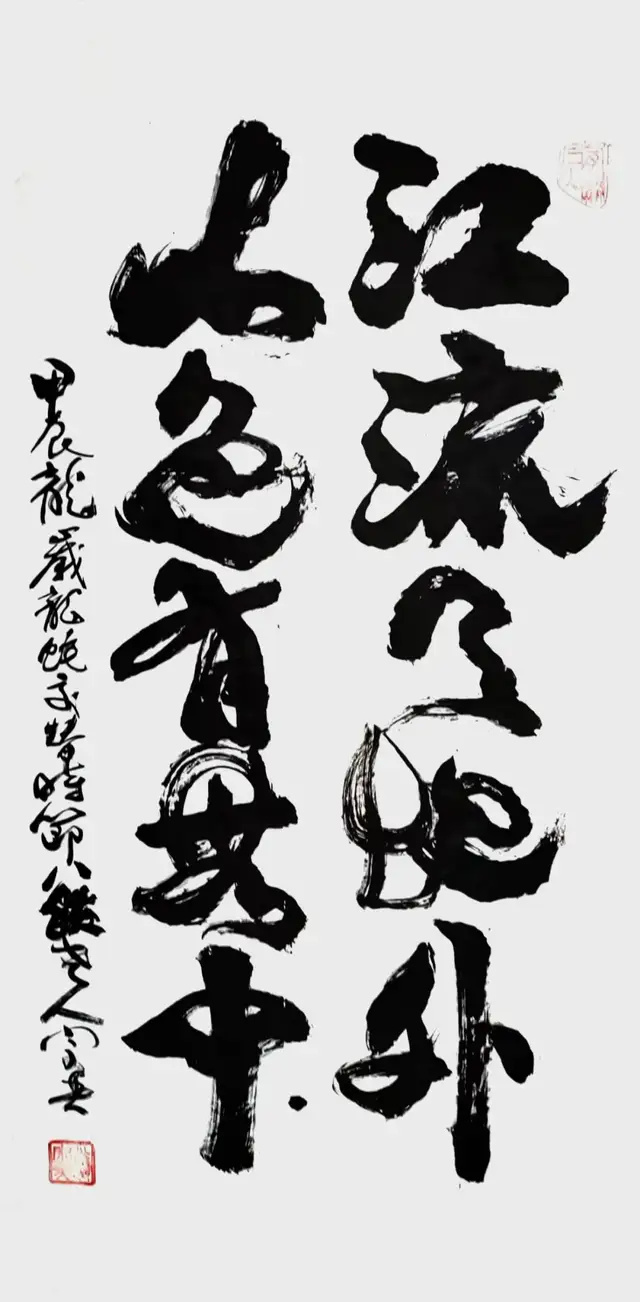 江流天地外
山色有無中
甲辰龍歲龍蛇交替時節八老人